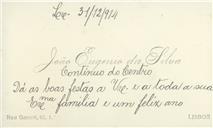 31/12/914
João Eugenio da Silva
Continuo do Centro
Dá as boas festas a V. e a toda a sua
Ex.ma familia e um feliz ano
Rua Garrett,
LISBOA